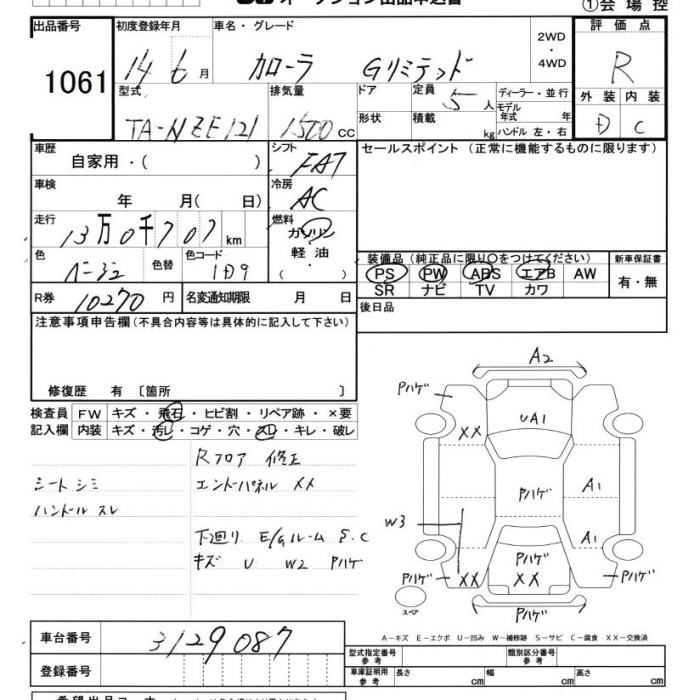 ①会場控
出品番号 初度登録年月 車名・グレード 2WD・4WD 評価点
1061 14 6 月 カローラ Gリミテッド R
型式 排気量 ドア 定員 5 人 ディーラー・並行 外装 内装
TA-NZE121 1500 CC 形状 積載 kg モデル年式 年 ハンドル 左・右 D C
車歴 シフト セールスポイント(正常に機能するものに限ります)
自家用・( ) FAT
車検 冷房
年 月(日) AC
走行 燃料
13万0千707km ガソリン・軽油・( )
色 ベージュ 色替 色コード 装備品(純正品に限り○をつけてください) 新車保証書
PS PW ABS エアB AW 有・無
SR ナビ TV カワ
R券 10270 円 名変通知期限 月 日 後日品
注意事項申告欄(不具合内容等は具体的に記入して下さい)
修復歴 有〔箇所 〕
検査員 FW キズ・飛石・ヒビ割・リペア跡・×要
記入欄 内装 キズ・汚レ・コゲ・穴・スレ・キレ・破レ
Rフロア 修正
シートシミ エンドパネル XX
ハンドル スレ
下廻り E/Gルーム S.C
キズ U W2 Pハゲ
A2
Pハゲ
XX UA1
Pハゲ A1
W3 A1
Pハゲ Pハゲ Pハゲ
XX XX
スペア Pハゲ
A-キズ E-エクボ U-凹み W-補修跡 S-サビ C-腐食 XX-交換済
車台番号 3129087
型式指定番号 参考 類別区分番号 参考
登録番号 車庫証明用 参考 長さ cm 幅 cm 高さ cm